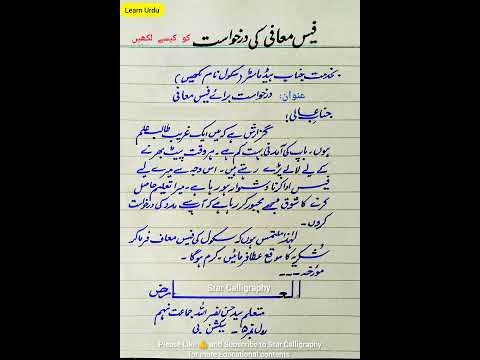 Learn Urdu
فیس معافی کی درخواست کو کیسے لکھیں
بخدمت جناب ہیڈ ماسٹر (سکول نام لکھیں)
عنوان: درخواست برائے فیس معافی
جناب عالی!
گزارش ہے کہ میں ایک غریب طالب علم
ہوں۔ باپ کی آمدنی بہت کم ہے۔ ہر وقت پیٹ بھرنے
کے لیے لالے پڑے رہتے ہیں۔ اس وجہ سے میرے لیے
فیس ادا کرنا دشوار ہو رہا ہے۔ میرا تعلیم حاصل
کرنے کا شوق مجھے مجبور کر رہا ہے کہ آپ سے مدد کی درخواست
کروں۔
لہٰذا ملتمس ہوں کہ سکول کی فیس معاف فرما کر
شکریہ کا موقع عطا فرمائیں۔ کرم ہوگا۔
مورخہ ۔۔۔
العارض
Star Calligraphy
متعلم سید حسن نصر اللہ جماعت نہم
رول نمبر ۵۔ سیکشن بی
Please Like 👍 and Subscribe to Star Calligraphy
for more Educational contents